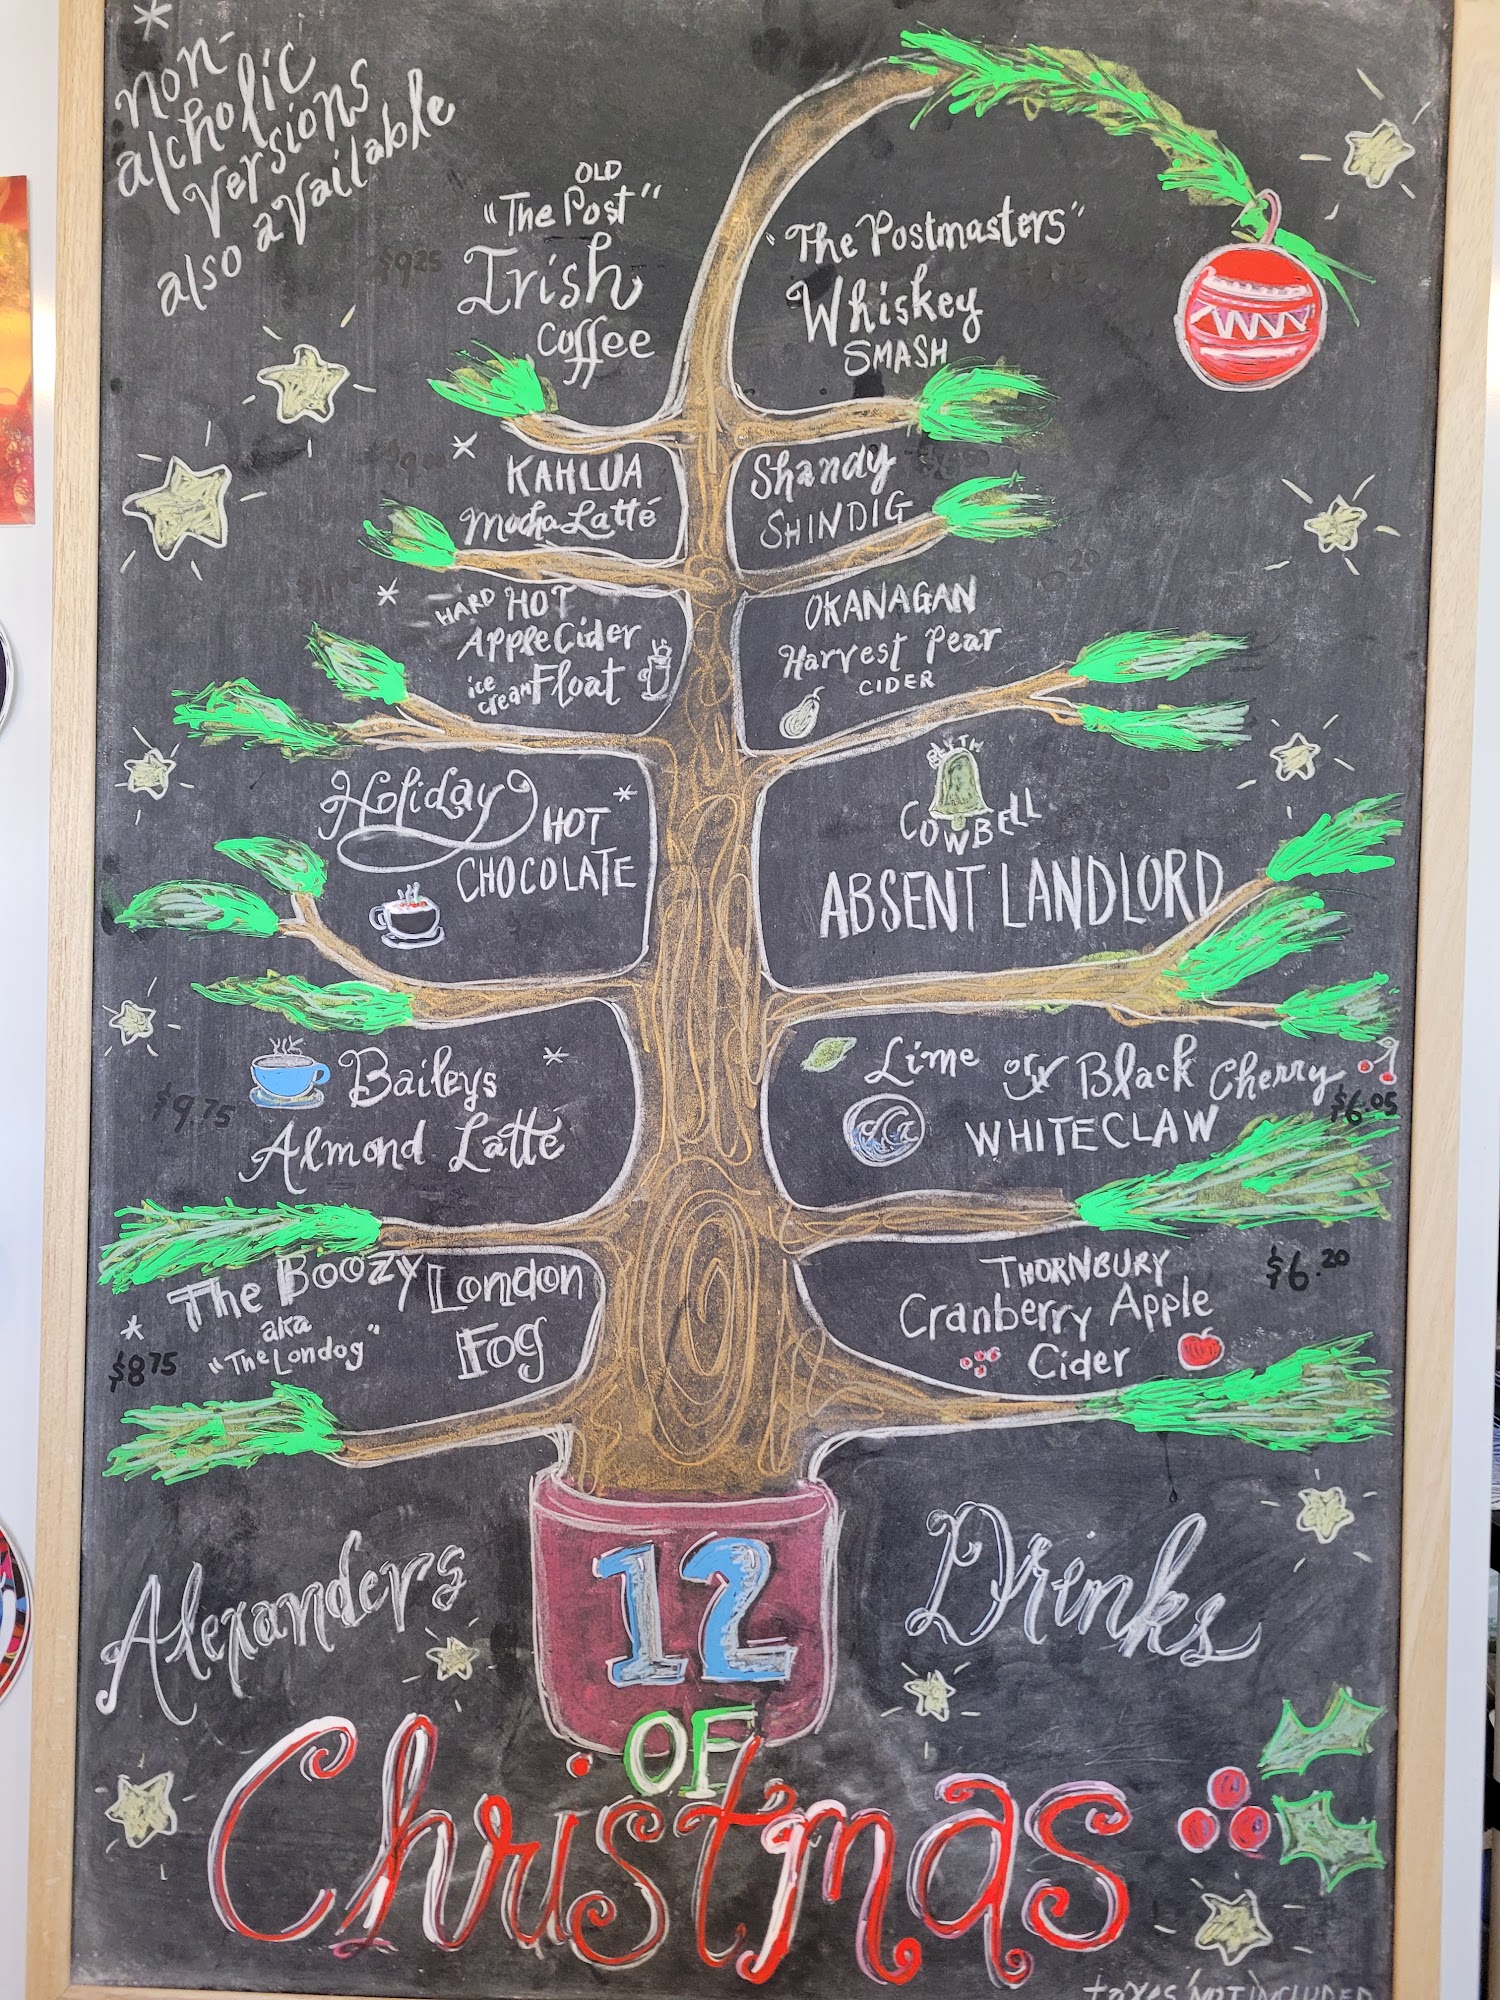 *
non-
alcholic
versions
also available
OLD
"The Post"
$9.25
Irish
Coffee
"The Postmasters"
Whiskey
SMASH
*
KAHLUA
Mocha Latté
Shandy
SHINDIG
*
HARD HOT
Apple Cider
ice cream Float
OKANAGAN
Harvest Pear
CIDER
Holiday
HOT *
CHOCOLATE
BLYTH
COWBELL
ABSENT LANDLORD
Baileys *
$9.75
Almond Latté
Lime or Black Cherry
$6.05
WHITECLAW
The Boozy London
* aka
"The Londog" Fog
$8.75
THORNBURY $6.20
Cranberry Apple
Cider
Alexanders
12
Drinks
OF
Christmas
taxes NOT INCLUDED